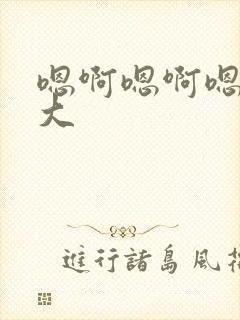 嗯啊嗯啊嗯
大
進行諸島風